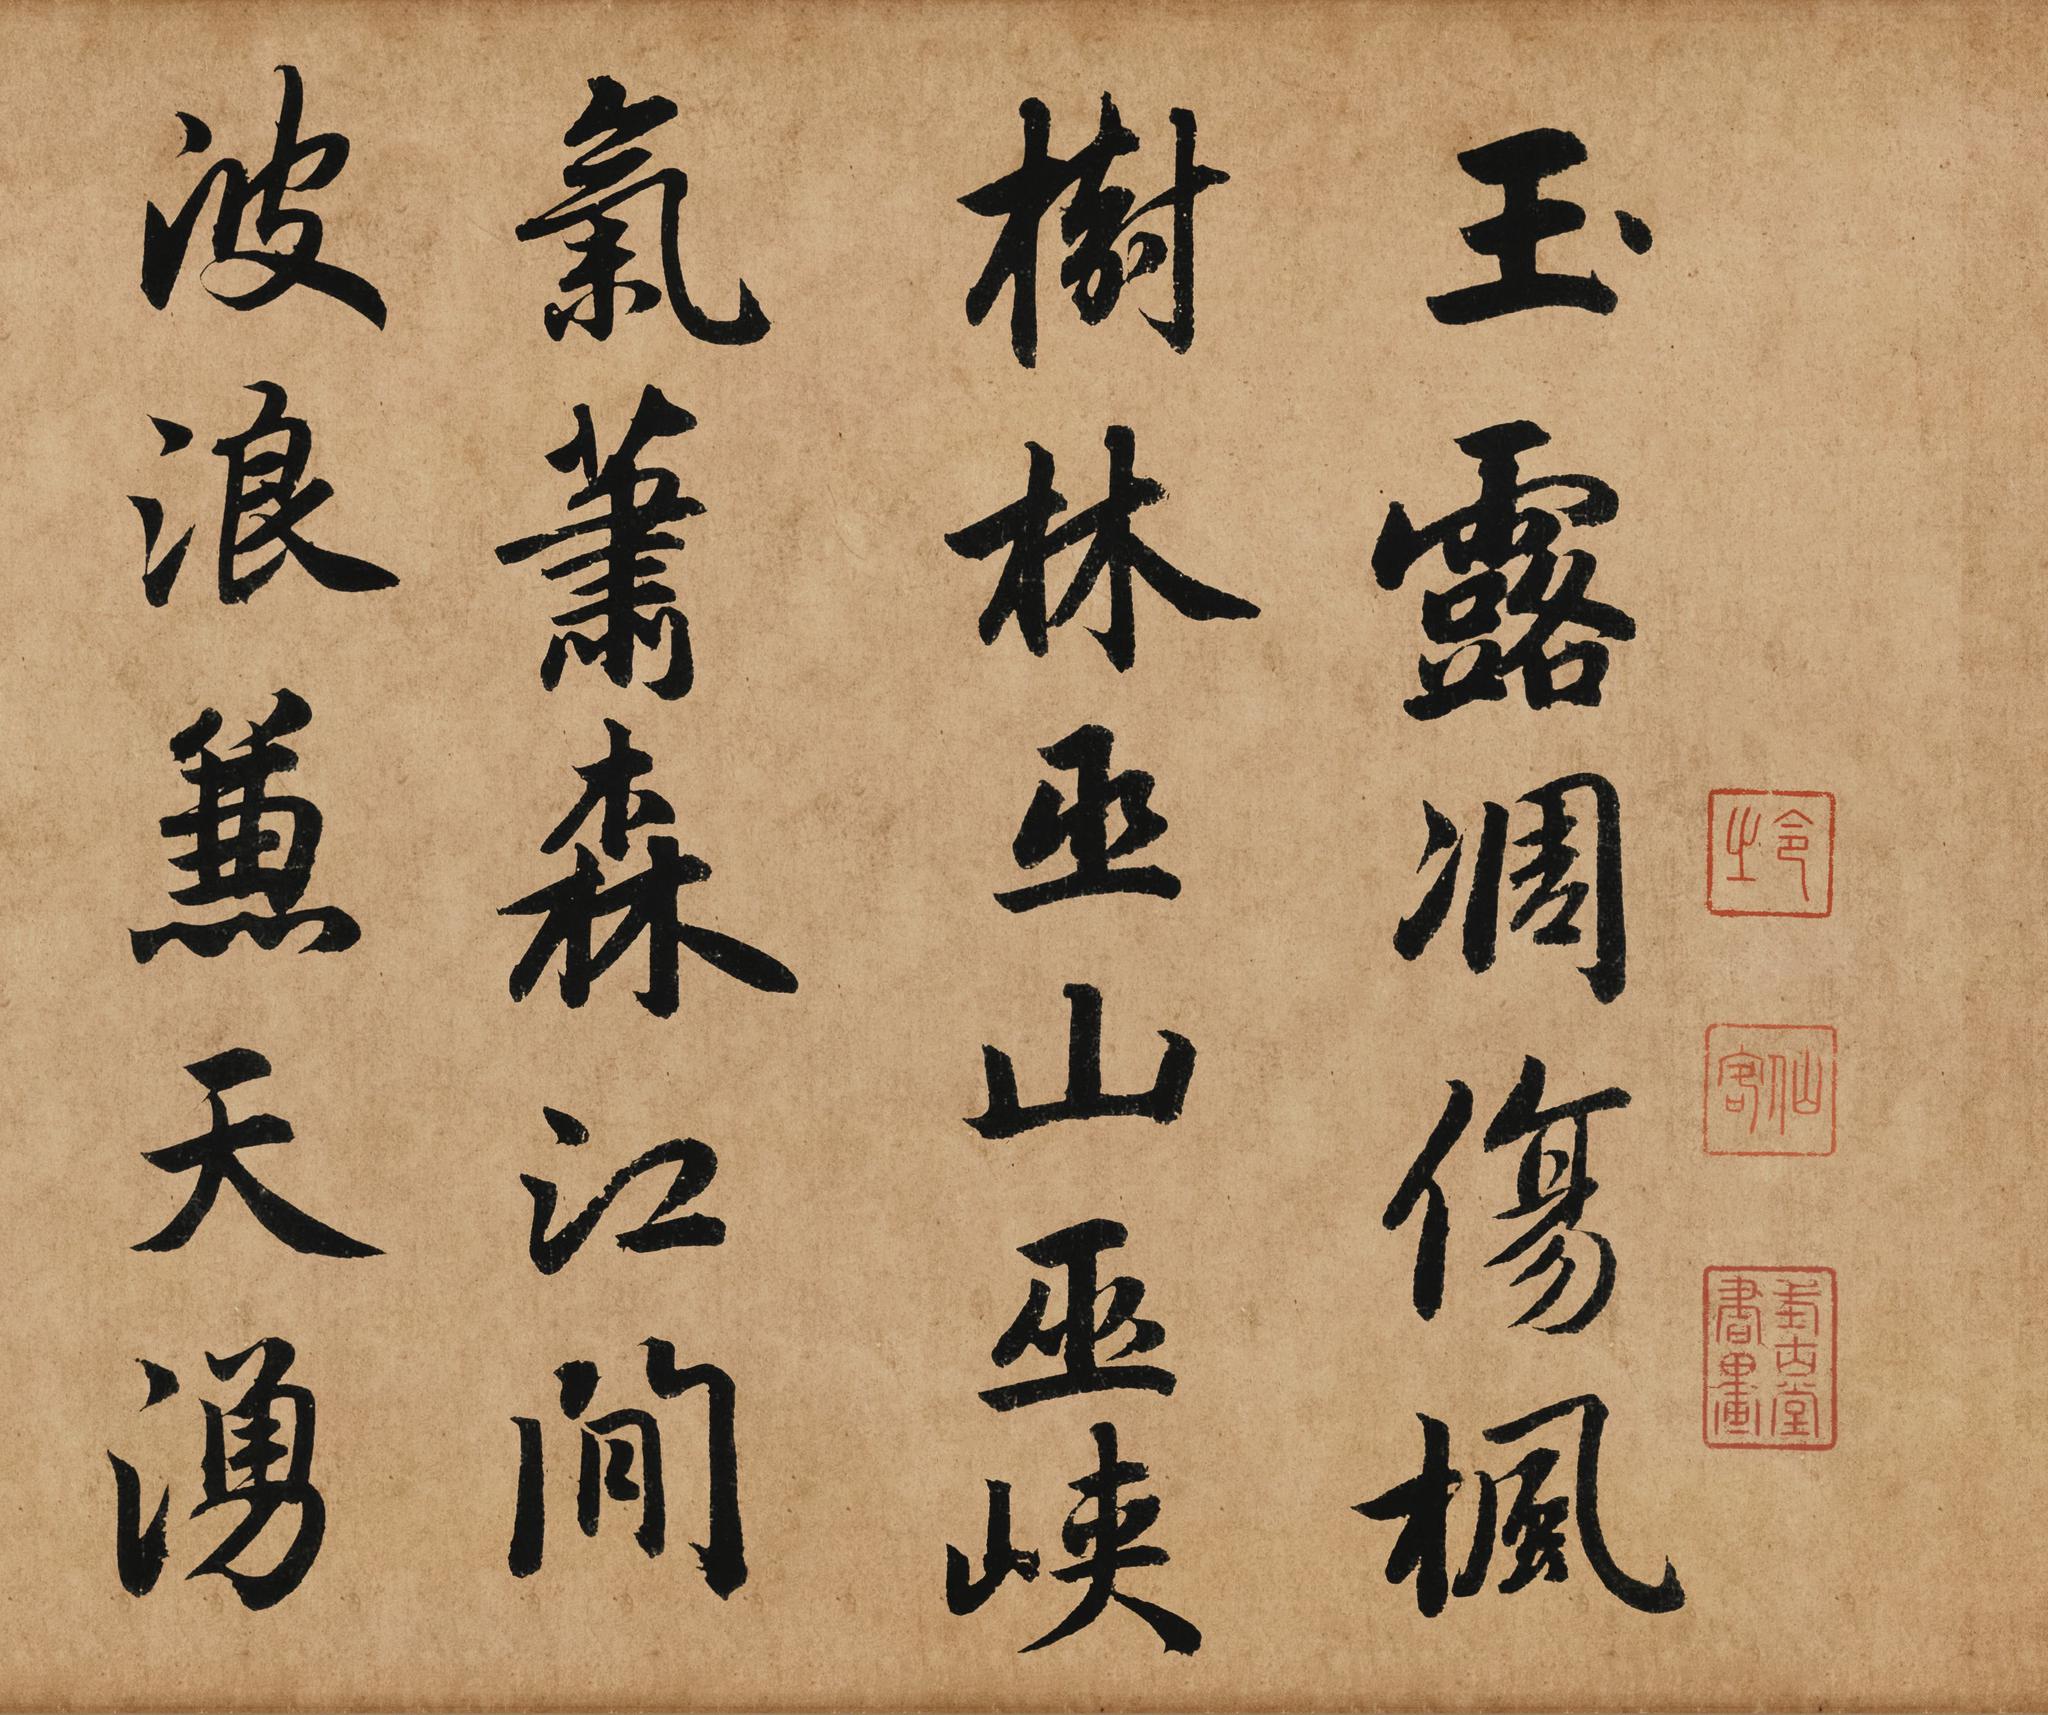 玉露凋傷楓
樹林巫山巫峽
氣蕭森江間
波浪兼天湧
仙客
書畫